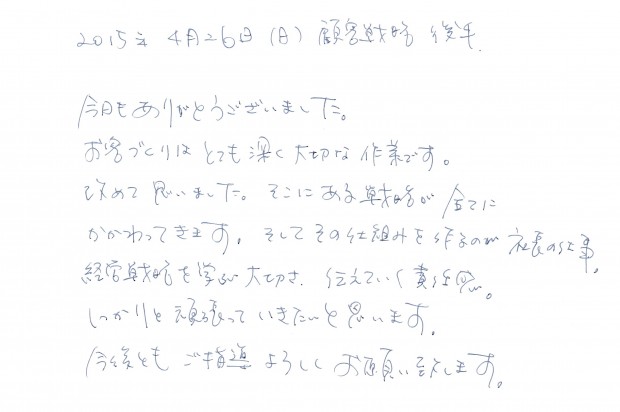 2015年 4月26日(日) 顧客戦略 後半.
今日もありがとうございました。
お客づくりはとても深く大切な作業です。
改めて思いました。そこにある戦略が全てに
かかわってきます。そしてその仕組みを作るのが社長の仕事。
経営戦略を学ぶ大切さ、伝えていく責任感。
しっかりと頑張っていきたいと思います。
今後ともご指導よろしくお願い致します。